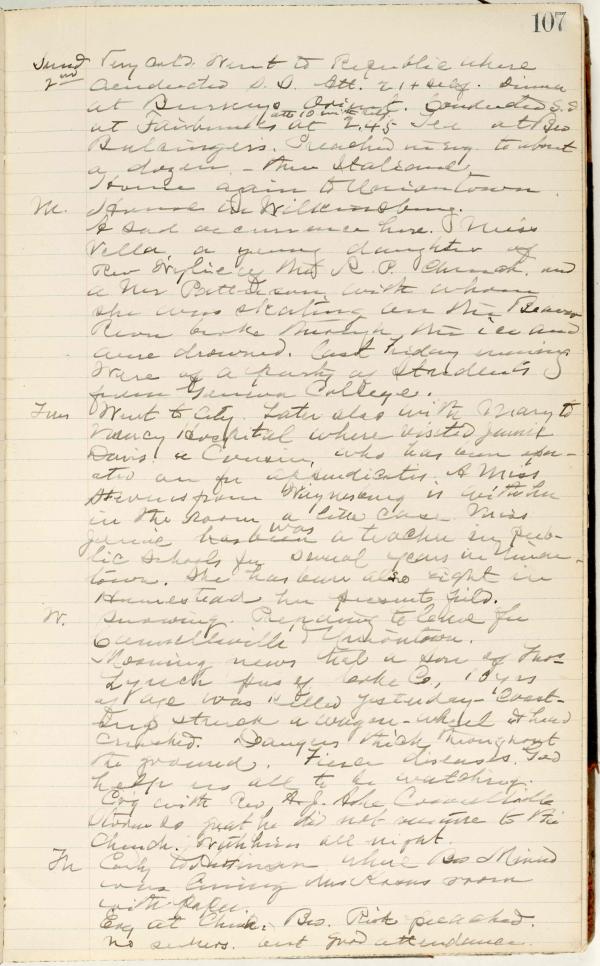 107
Sund Very cold. Went to Republic where
2nd conducted S. S. Att. 21 + self. Dinner
at
at Fairbanks at 2.45 Tea at Bro
Preached in evg. to about
a dozen - three Italians.
Home again to Uniontown.
M. Home to Wilkinsburg.
A sad occurrence here. Miss
Vella, a young daughter of
Rev Wylie of the R. P. Church, and
a Mr Patterson with whom
she was skating on the Beaver
River broke through the ice and
were drowned. Last Friday evening
Were of a party of students
from Geneva College.
Tues Went to city. Later also with Mary to
Mercy Hospital where visited Jennie
Davis a Cousin, who has been oper-
ated on for appendicitis. A Miss
Stevens from Waynesburg is with her
in the room a like case. Miss
Jennie has been was a teacher in pub-
lic schools for several years in Union-
town. She has been also eight in
Homestead her present field.
W. Snowing. Preparing to leave for
Connellsville & Uniontown.
Morning news that a son of Thos
Lynch pres of Coke Co, 10 yrs
of age was killed yesterday - Coast-
ing struck a wagon-wheel & head
crushed. Dangers thick throughout
the ground. Fierce diseases. God
help us all to be watching.
Evg with Rev. A. J. Ashe Connellsville
so great he did not venture to the
Church. With him all night.
Th Early to where Bro Minud
was room
with paper.
Evg at Chh. Bro. Risk preached.
No seekers. but good attendance.